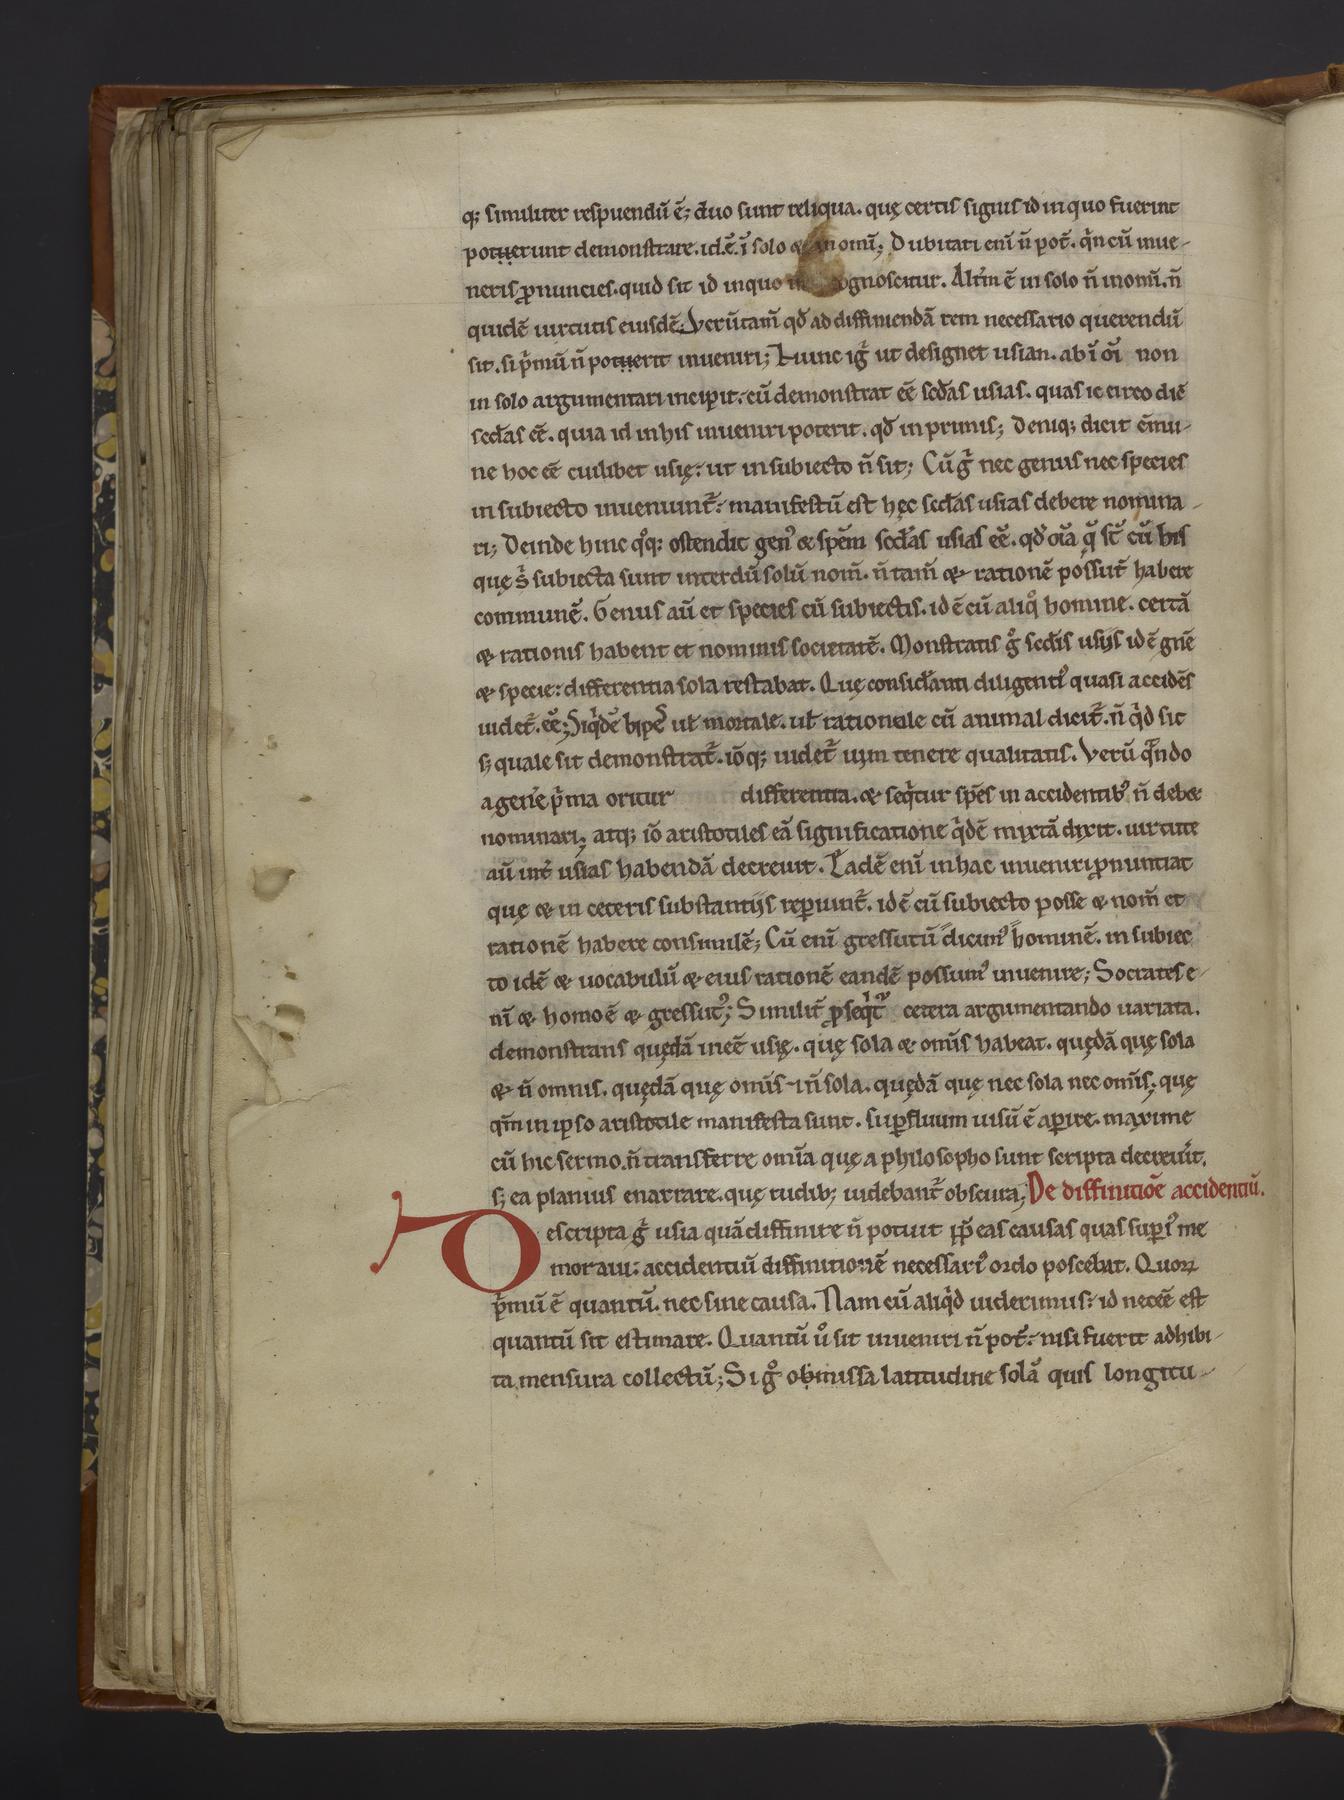 q; similiter respuendū ē; duo sunt reliqua. quę certis signis id in quo fuerint
potuerunt demonstrare. id.ē. ī solo & in omī; Dubitari enī n̄ pot̄. q̄n cū inue-
neris ꝓnuncies. quid sit id inquo cognoscitur. Altm̄ ē in solo n̄ inomī. n̄
quidē uirtutis eiusdē. Verūtam̄ qđ ad diffiniendā rem necessario querendū
sit. si p̄mū n̄ potuerit inueniri; Hunc igr̄ ut designet usian. ab ī oī non
in solo argumentari incipit. cū demonstrat eē scđas usias. quas iccirco dic̄
scđas eē. quia id in his inueniri poterit. qđ in primis; Deniq; dicit c̄mu-
ne hoc eē cuilibet usię. ut in subiecto n̄ sit; Cū g̊ nec genus nec species
in subiecto inueniunt̄. manifestū est hęc scđas usias debere nomina-
ri; Deinde hinc q̊q; ostendit gen᷒ & spēm scđas usias eē. qđ oīa q̄ st̄ cū his
quę s̄ subiecta sunt interdū solū nom̄. n̄ tam̄ & rationē possūt habere
communē. Genus aū et species cū subiectis. id ē cū aliq̊ homine. certā
& rationis habent et nominis societatē. Monstratis g̊ scđis usiis id ē gn̄e
& specie: differentia sola restabat. Quę considanti diligenti᷒ quasi accidēs
uidet̄. eē; Siq̄dē bipes ut mortale. ut rationale cū animal dicit̄. n̄ q̄d sit
s; quale sit demonstrat̄. iō q; uidet̄ uim tenere qualitatis. Verū q̄ndo
a gen̄e p̄ma oritur differentia. & seq̄tur sp̄es in accidentib᷒ n̄ debet
nominari; atq; iō aristotiles eā significatione q̄dē mixtā dixit. uirtute
aū int̄ usias habendā decreuit. Eadē enī in hac inueniri ꝓnuntiat
quę & in ceteris substantiis reperiunt̄. id ē cū subiecto posse & nom̄ et
rationē habere consimilē; Cū enī gressutū dicim᷒ hominē. in subiec
to idē & uocabulū & eius rationē eandē possum᷒ inuenire; Socrates e-
nī & homo ē & gressut᷒; Similit̄ ꝓseq̄t̄ cetera argumentando uariata.
demonstrans quędā ineē usię. quę sola & om̄is habeat. quędā quę sola
& n̄ omnis. quędā quę om̄is & n̄ sola. quędā quę nec sola nec om̄is; quę
qm̄ in ipso aristotile manifesta sunt. suꝑfluum uisū ē aꝑire. maxime
cū hic sermo. n̄ transferre omīa quę a philosopho sunt scripta decreuit.
s; ea planius enarrare. quę rudib; uidebant̄ obscura; De diffinitiōe accidentiū.
Descripta g̊ usia quā diffinire n̄ potuit ꝓp̄ eas causas quas suꝑi᷒ me
moraui: accidentiū diffinitionē necessari᷒ ordo poscebat. Quoꝝ
p̄mū ē quantū. nec sine causa. Nam cū aliq̄d uiderimus: id necēe est
quantū sit estimare. Quantū ů sit inueniri n̄ pot̄. nisi fuerit adhibi-
ta mensura collectū; Si g̊ obmissa latitudine solā quis longitu-